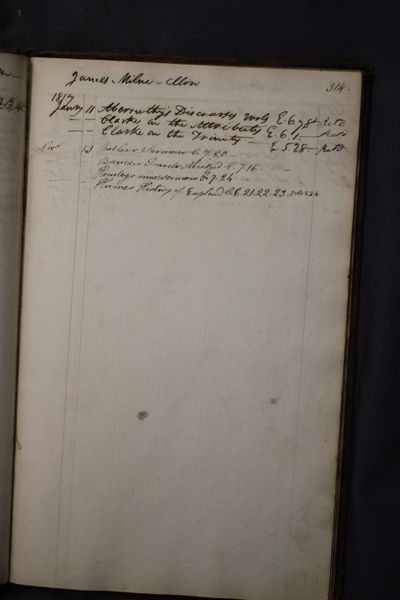 James Milne Ellon 314.
1817
Janry 11 Abernethy's Discourses 2 vols E. 6. 7 8 Retd
— — Clarke on the Attributes E. 6. 1 — Retd
— — Clarke on the Trinity E. 5. 28 — Retd
13 Butler's Sermons C. 7. 20
Bruce's Travels Abridged C. 7. 16
Sermons 7. 24
Humes History of England C. 6. 21. 22. 23.